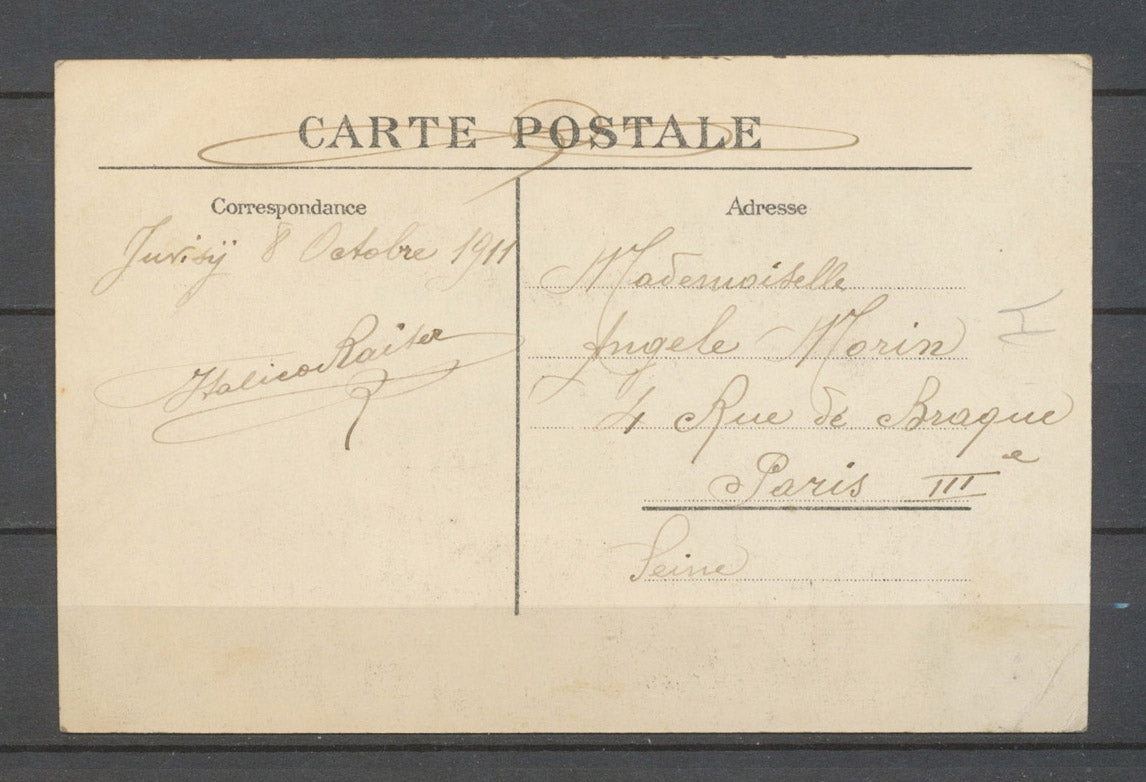 CARTE POSTALE
Correspondance
Juvisÿ 8 Octobre 1911
Italico Raiter
Adresse
Mademoiselle
Angele Morin
4 Rue de Braque
Paris IIIe
Seine